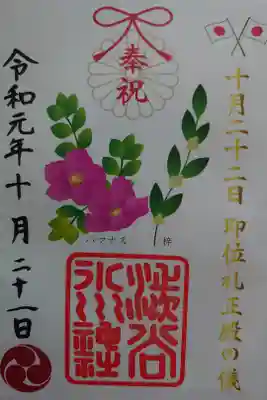 奉祝
十月二十二日 即位礼正殿の儀
令和元年十月二十一日
ハマナス
梓
澁谷
氷川
神社